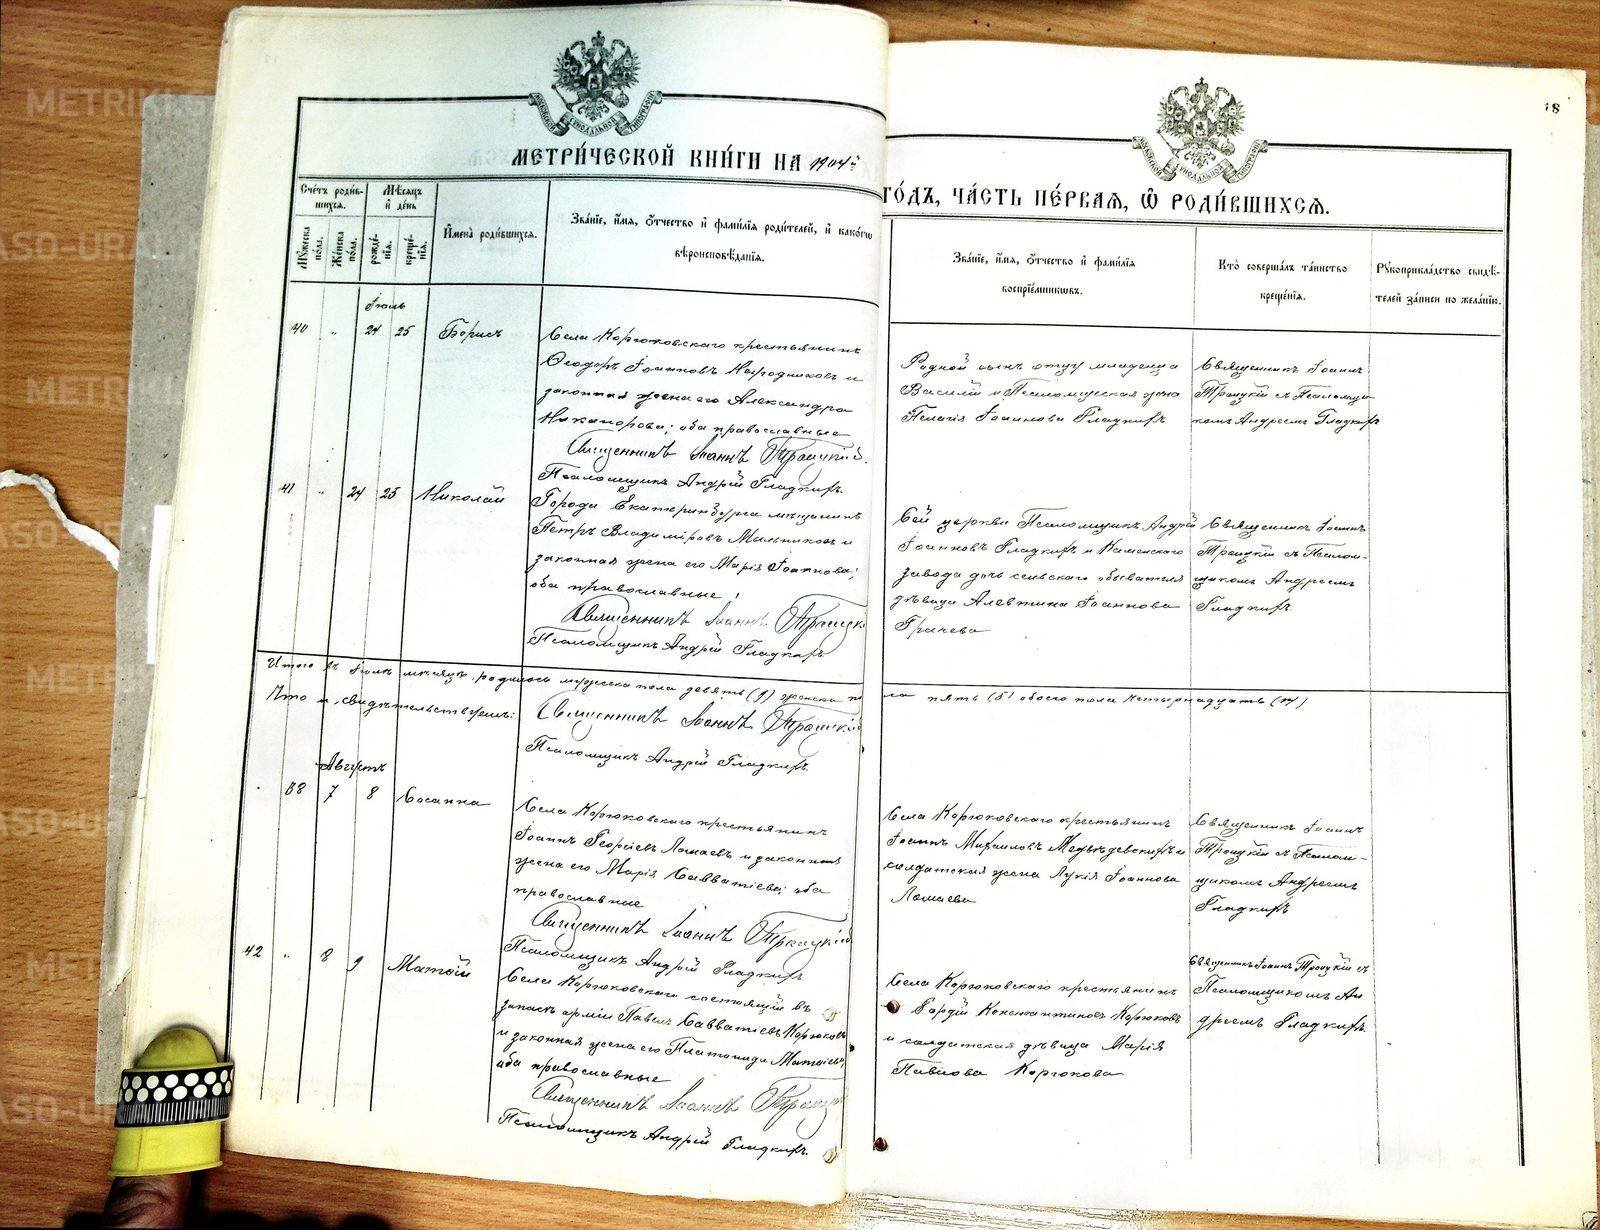 МЕТРИ́ЧЕСКОЙ КНИ́ГИ НА 1904-й
ГО́ДЪ, ЧА́СТЬ ПЕ́РВАЯ, Ѡ РОДИ́ВШИХСЯ.
18
Сче́тъ роди́в-
шихся.
Мѣ́сяцъ
и҆ де́нь
Му́жеска
по́ла.
Же́нска
по́ла.
рожде́-
нїя.
креще́-
нїя.
И҆мена̀ роди́вшихся.
Зва́нїе, и҆́мя, ѻ҆́тчество и҆ фами́лїя роди́телей, и҆ како́гѡ
вѣроисповѣ́данїя.
Зва́нїе, и҆́мя, ѻ҆́тчество и҆ фами́лїя
воспрїе́мникѡвъ.
Кто̀ соверша́лъ та́инство
креще́нїя.
Рꙋкоприкла́дство свидѣ́-
телей за́писи по жела́нїю.
Іюль
40 " 24 25 Борисъ
Села Корюковскаго крестьянинъ
Ѳеодоръ Іоанновъ и
законная жена его Александра
Никанорова; оба православные
Священникъ Іоаннъ Троицкій.
Псаломщикъ Андрей Гладкихъ.
Родной сынъ отцу младенца
Василій и Псаломщеская жена
Пелагія Іоаннова Гладкихъ
Священникъ Іоаннъ
Троицкій съ Псаломщи
комъ Андреемъ Гладкихъ
41 " 24 25 Николай
Города Екатеринбурга мѣщанинъ
Петръ Владиміровъ Мальниковъ и
законная жена его Марія Іоаннова;
оба православные;
Священникъ Іоаннъ Троицкій
Псаломщикъ Андрей Гладкихъ
Сей церкви Псаломщикъ Андрей
Іоанновъ Гладкихъ и Каменскаго
завода дочь сельскаго обывателя
дѣвица Алевтина Іоаннова
Грачева
Священникъ Іоаннъ
Троицкій съ Псалом-
щикомъ Андреемъ
Гладкихъ
Итого въ Іюлѣ мѣсяцѣ родилось мужеска пола девять (9) женска по
ла пять (5) обоего пола четырнадцать (14)
Что и свидѣтельствуемъ: Священникъ Іоаннъ Троицкій
Псаломщикъ Андрей Гладкихъ.
Августъ
38 7 8 Сосанна
Села Корюковскаго крестьянинъ
Іоаннъ Георгіевъ Ломаевъ и законная
жена его Марія Савватіева; оба
православные
Священникъ Іоаннъ Троицкій
Псаломщикъ Андрей Гладкихъ
Села Корюковскаго крестьянинъ
Іоаннъ Михаиловъ Медвѣдевскихъ и
солдатская жена Лукія Іоаннова
Ломаева
Священникъ Іоаннъ
Троицкій съ Псалом-
щикомъ Андреемъ
Гладкихъ
42 " 8 9 Матѳій
Села Корюковскаго состоящій въ
запасѣ арміи Павелъ Савватіевъ Корюковъ
и законная жена его Платонида Матѳіева,
оба православные
Священникъ Іоаннъ Троицкій
Псаломщикъ Андрей Гладкихъ.
Села Корюковскаго крестьянинъ
Гордій Константиновъ Корюковъ
и солдатская дѣвица Марія
Павлова Корюкова
Священникъ Іоаннъ Троицкій съ
Псаломщикомъ Ан
дреемъ Гладкихъ